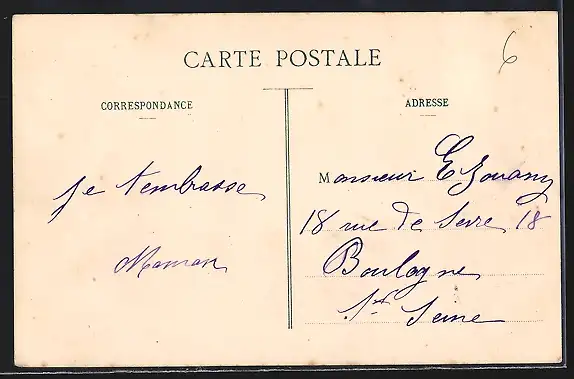 6
CARTE POSTALE
CORRESPONDANCE
ADRESSE
Je t'embrasse
Maman
Monsieur E Jouany
18 rue de Sevre 18
Boulogne
s/ Seine